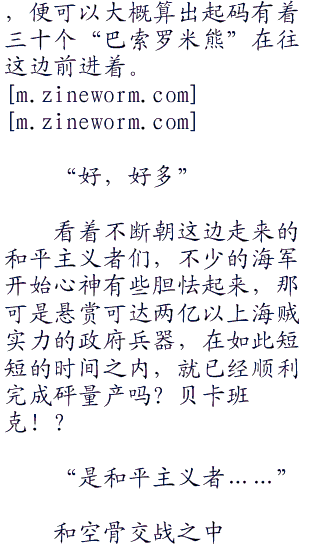 ，便可以大概算出起码有着
三十个“巴索罗米熊”在往
这边前进着。
[m.zineworm.com]
[m.zineworm.com]
“好，好多”
看着不断朝这边走来的
和平主义者们，不少的海军
开始心神有些胆怯起来，那
可是悬赏可达两亿以上海贼
实力的政府兵器，在如此短
短的时间之内，就已经顺利
完成砰量产吗？贝卡班
克！？
“是和平主义者……”
和空骨交战之中